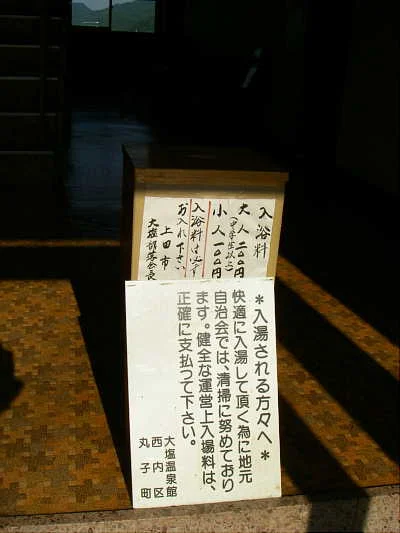 入浴料
大人 二〇〇円
(中学生以上)
小人 一〇〇円
入浴料は必ず
お入れ下さい
上田市
大塩部落会長
＊入湯される方々へ＊
快適に入湯して頂く為に地元
自治会では、清掃に努めており
ます。健全な運営上入場料は、
正確に支払って下さい。
大塩温泉館
西内区
丸子町